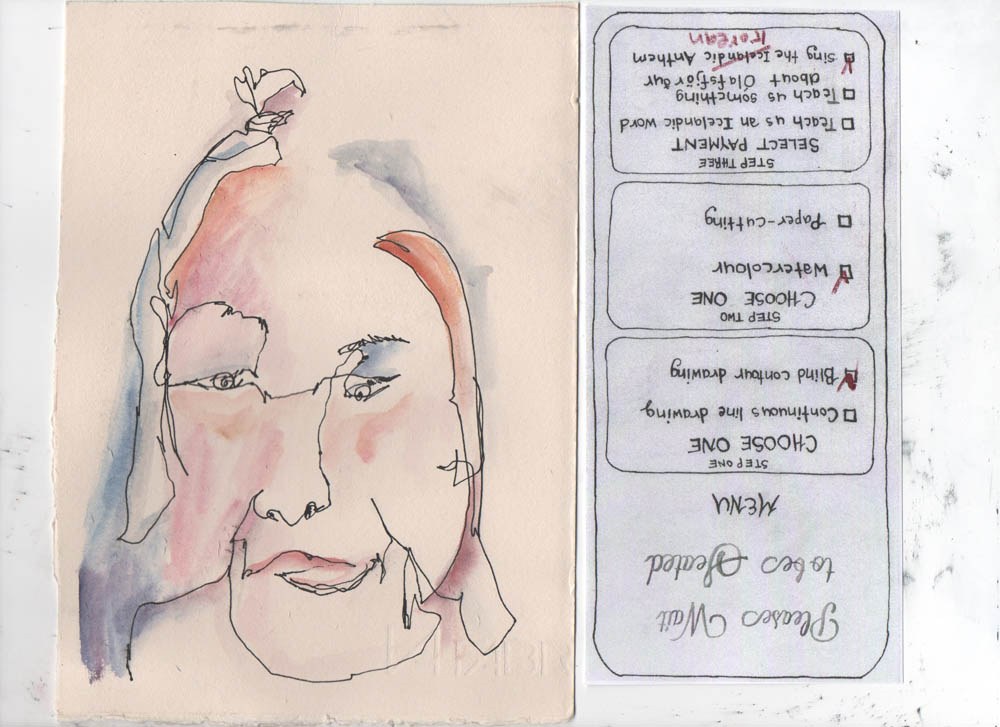 Please Wait
to be Seated
MENU
STEP ONE
CHOOSE ONE
Continuous line drawing
Blind contour drawing
STEP TWO
CHOOSE ONE
Watercolour
Paper-cutting
STEP THREE
SELECT PAYMENT
Teach us an Icelandic word
Teach us something
about Ólafsfjörður
Sing the Icelandic Anthem
Korean